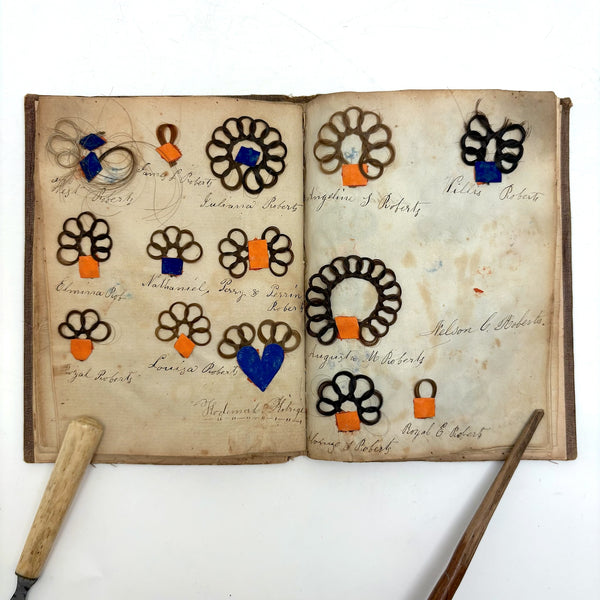 West Roberts
James L Roberts
Juliana Roberts
Elmina Rob
Nathaniel
Perry & Perrin
Roberts
Royal Roberts
Louiza Robert
Angeline S Roberts
Willis Roberts
Nelson C Roberts.
Augusta M Roberts
Roberts
Royal E Robert